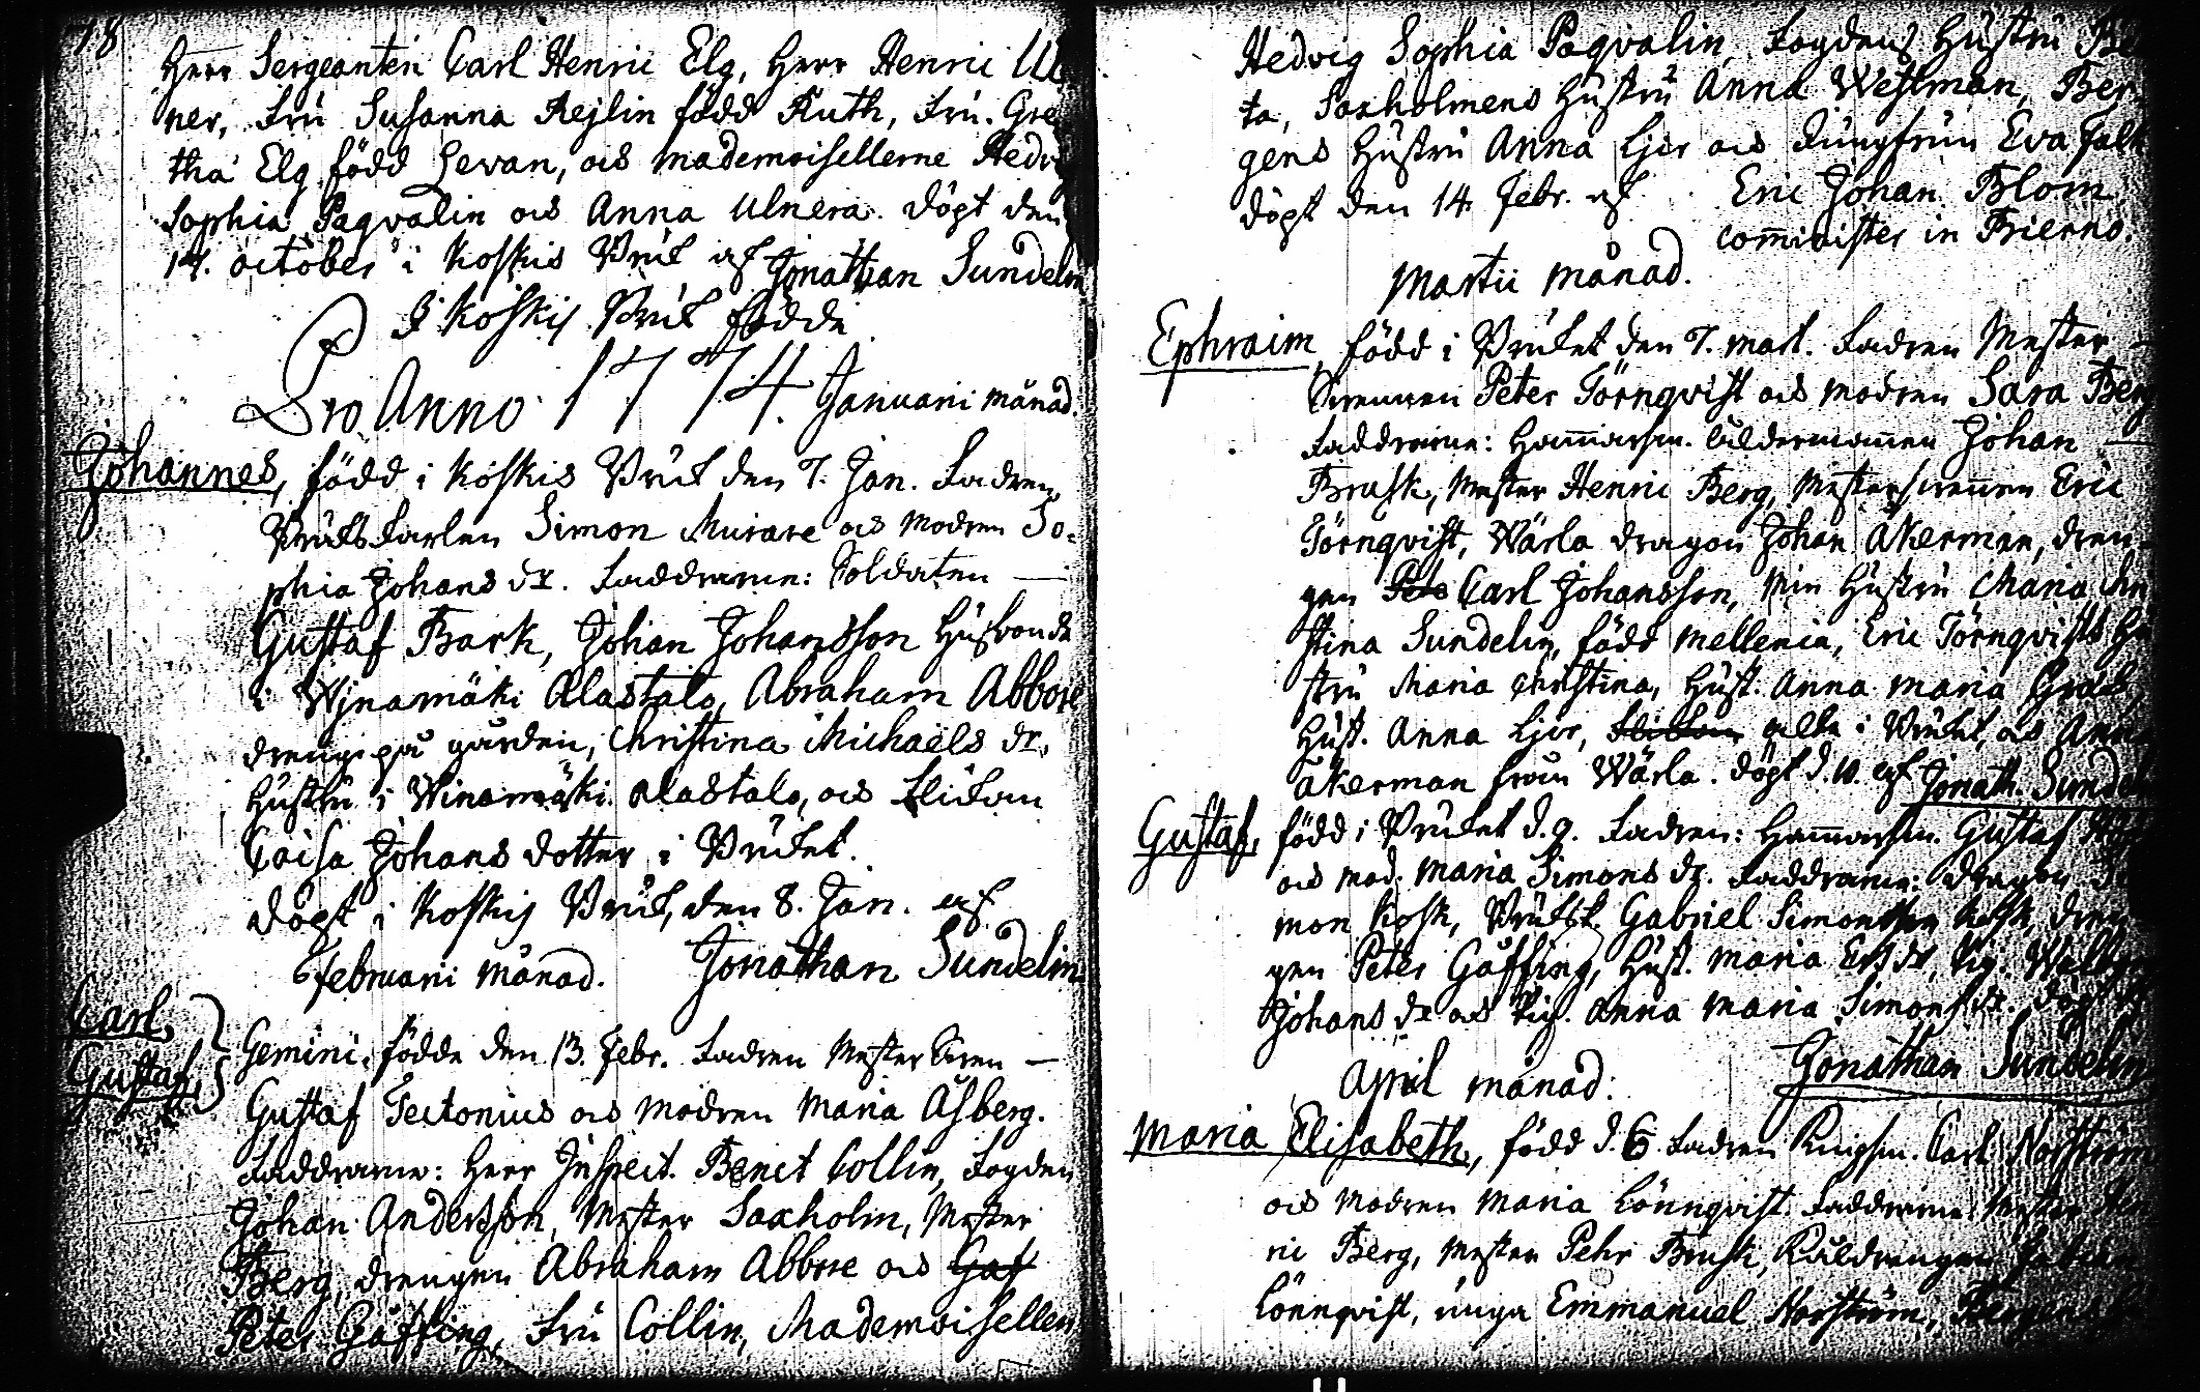 78
Herr Sergeanten Carl Henric Elg, Herr Henric Ul
ner, Fru Susanna Rejlin född Ruth, Fru. Gre
tha Elg född Levan, och Mademoisellerne Hedvig
Sophia Paqvalin och Anna Ulnera. döpt den
14. october i Koskis Bruk af Jonathan Sundelin
I Koskis Bruk födde
Pro Anno 1774. Januarii månad.
Johannes, född i Koskis Bruk den 7. Jan. Fadren
Bruks Karlen Simon Murare och Modren So-
phia Johans dr. Faddrarne: Soldaten
Gustaf Bark, Johan Johansson Husbonde
i Wjnamäki Alastalo, Abraham Abbore
dreng på gården, Christina Michaels dr.
Hustru i Winamäki Alastalo, och flickan
Caisa Johans dotter i Bruket.
döpt i Koskis Bruk, den 8. Jan. af
Jonathan Sundelin
Februarii Månad.
Carl,
Gustaf,
Gemini, födde den 13. Febr. Fadren Mester Sven
Gustaf Tectonius och Modren Maria Åsberg.
Faddrarne: Herr Inspect. Benct Collin, Fogden
Johan Andersson, Mester Saxholm, Mester
Berg, drengen Abraham Abbore och Gaf
Peter Gåffing, Fru Collin, Mademoisellen
Hedvig Sophia Paqvalin, Fogdens Hustru Be
ta, Saxholmens Hustru Anna Westman, Ber
gens Hustru Anna Ljer och Jungfrun Eva Falk
döpt den 14. Febr. af Eric Johan Blom
Comminister in Bierno.
Martii månad.
Ephraim, född i Bruket den 7. Mart. Fadren Mester
Svennen Peter Törnqvist och Modren Sara Berg
Faddrarne: Hammarsm. åldermannen Johan
Brusk, Mester Henric Berg, Mestersvennen Eric
Törnqvist, Wärla dragon Johan Åkerman, dren-
gen Pete Carl Johansson, Min Hustru Maria Chri
stina Sundelin, född Mellenia, Eric Törnqvists Hu
stru Maria Christina, Hust. Anna Maria
Hust. Anna Ljer, i Bruket, och Anna
Åkerman från Wärla. döpt d. 10. af Jonath. Sundel
Gustaf, född i Bruket d. 9. Fadren: Hammarsm. Gustaf
och Mod. Maria Simons dr. Faddrarne: dragon Si
mon Kosk, Bruksk. Gabriel Simonsson Kosk, dren
gen Peter Gåffing, Hust. Maria Ers dr, Pig.
Johans dr och Pig. Anna Maria Simons dr. döpt
Jonathan Sundelin
April månad:
Maria Elisabeth, född d. 6. Fadren Knipsm. Carl Norström
och Modren Maria Lönnqvist. Faddrarne: Mester Hen
ric Berg, Mester Pehr Brusk, Kåldrengen
Lönnqvist, unga Emmanuel Norström, Bergens